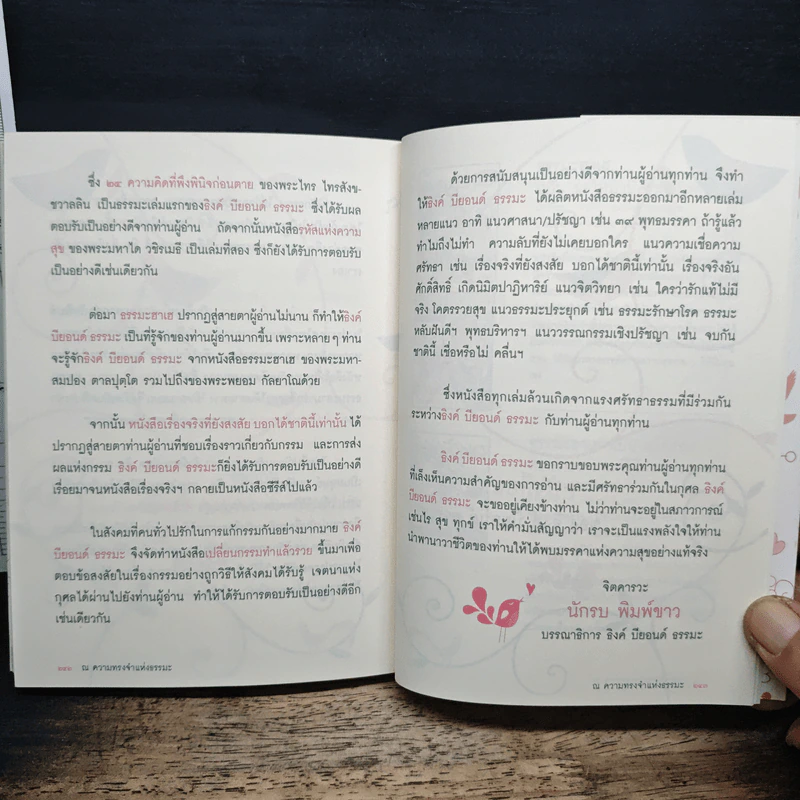 ซึ่ง ๒๔ ความคิดที่พึงพินิจก่อนตาย ของพระไทร ไทรสังข-
ชวาลลิน เป็นธรรมะเล่มแรกของธิงค์ บียอนด์ ธรรมะ ซึ่งได้รับผล
ตอบรับเป็นอย่างดีจากท่านผู้อ่าน ถัดจากนั้นหนังสือรหัสแห่งความ
สุข ของพระมหาได วชิรเมธี เป็นเล่มที่สอง ซึ่งก็ยังได้การตอบรับ
เป็นอย่างดีเช่นเดียวกัน
ต่อมา ธรรมะฮาเฮ ปรากฏสู่สายตาผู้อ่านไม่นาน ก็ทำให้ธิงค์
บียอนด์ ธรรมะ เป็นที่รู้จักของท่านผู้อ่านมากขึ้น เพราะหลายๆ ท่าน
จะรู้จักธิงค์ บียอนด์ ธรรมะ จากหนังสือธรรมะฮาเฮ ของพระมหา-
สมปอง ตาลปุตฺโต รวมไปถึงของพระพยอม กัลยาโณด้วย
จากนั้น หนังสือเรื่องจริงที่ยังสงสัย บอกได้ชาตินี้เท่านั้น ได้
ปรากฏสู่สายตาท่านผู้อ่านที่ชอบเรื่องราวเกี่ยวกับกรรม และการส่ง
ผลแห่งกรรม ธิงค์ บียอนด์ ธรรมะก็ยิ่งได้รับการตอบรับเป็นอย่างดี
เรื่อยมาจนหนังสือเรื่องจริงฯ กลายเป็นหนังสือซีรีส์ไปแล้ว
ในสังคมที่คนทั่วไปรักในการแก้กรรมกันอย่างมากมาย ธิงค์
บียอนด์ ธรรมะ จึงจัดทำหนังสือเปลี่ยนกรรมทำแล้วรวย ขึ้นมาเพื่อ
ตอบข้อสงสัยในเรื่องกรรมอย่างถูกวิธีให้สังคมได้รับรู้ เจตนาแห่ง
กุศลได้ผ่านไปยังท่านผู้อ่าน ทำให้ได้รับการตอบรับเป็นอย่างดีอีก
เช่นเดียวกัน
๒๔๖ ณ ความทรงจำแห่งธรรมะ
ด้วยการสนับสนุนเป็นอย่างดีจากท่านผู้อ่านทุกท่าน จึงทำ
ให้ธิงค์ บียอนด์ ธรรมะ ได้ผลิตหนังสือธรรมะออกมาอีกหลายเล่ม
หลายแนว อาทิ แนวศาสนา/ปรัชญา เช่น ๓๙ พุทธมรรคา ถ้ารู้แล้ว
ทำไมถึงไม่ทำ ความลับที่ยังไม่เคยบอกใคร แนวความเชื่อความ
ศรัทธา เช่น เรื่องจริงที่ยังสงสัย บอกได้ชาตินี้เท่านั้น เรื่องจริงอัน
ศักดิ์สิทธิ์ เกิดนิมิตปาฏิหาริย์ แนวจิตวิทยา เช่น ใครว่ารักแท้ไม่มี
จริง โคตรรวยสุข แนวธรรมะประยุกต์ เช่น ธรรมะรักษาโรค ธรรมะ
หลับฝันดีฯ พุทธบริหารฯ แนววรรณกรรมเชิงปรัชญา เช่น จบกัน
ชาตินี้ เชื่อหรือไม่ คลื่นฯ
ซึ่งหนังสือทุกเล่มล้วนเกิดจากแรงศรัทธาธรรมที่มีร่วมกัน
ระหว่างธิงค์ บียอนด์ ธรรมะ กับท่านผู้อ่านทุกท่าน
ธิงค์ บียอนด์ ธรรมะ ขอกราบขอบพระคุณท่านผู้อ่านทุกท่าน
ที่เล็งเห็นความสำคัญของการอ่าน และมีศรัทธาร่วมกันในกุศล ธิงค์
บียอนด์ ธรรมะ จะขออยู่เคียงข้างท่าน ไม่ว่าท่านจะอยู่ในสภาวการณ์
เช่นไร สุข ทุกข์ เราให้คำมั่นสัญญาว่า เราจะเป็นแรงพลังใจให้ท่าน
นำพานาวาชีวิตของท่านให้ได้พบมรรคาแห่งความสุขอย่างแท้จริง
จิตคารวะ
นักรบ พิมพ์ขาว
บรรณาธิการ ธิงค์ บียอนด์ ธรรมะ
ณ ความทรงจำแห่งธรรมะ ๒๔๗